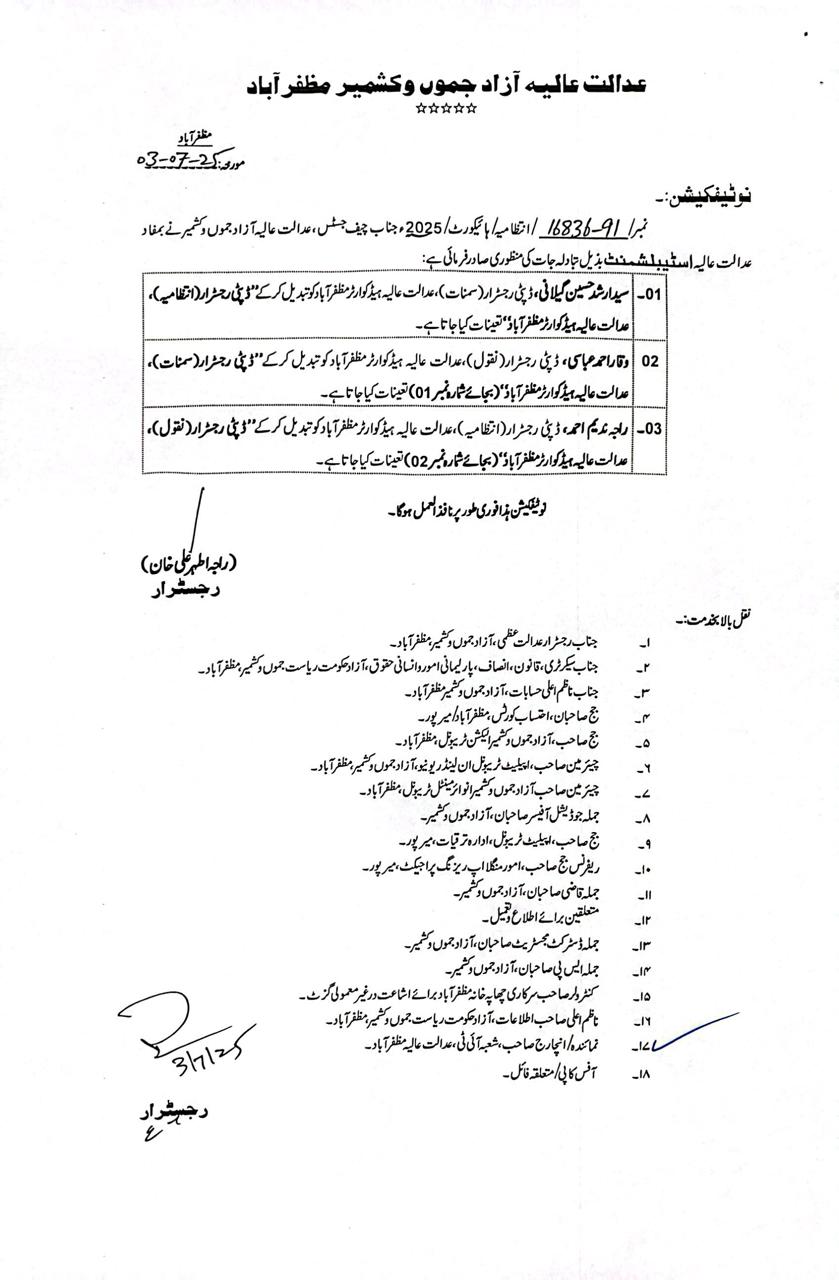 عدالت عالیہ آزاد جموں وکشمیر مظفرآباد
☆☆☆☆☆
مظفرآباد
مورخہ: 03-07-25
نوٹیفکیشن:۔
نمبر/ 16836-91 /انتظامیہ/ہائیکورٹ/2025ء جناب چیف جسٹس، عدالت عالیہ آزاد جموں وکشمیر نے بمفاد
عدالت عالیہ اسٹیبلشمنٹ بذیل تبادلہ جات کی منظوری صادر فرمائی ہے:
01۔ سید ارشد حسین گیلانی، ڈپٹی رجسٹرار (سمنات)، عدالت عالیہ ہیڈکوارٹر مظفرآباد کو تبدیل کر کے "ڈپٹی رجسٹرار (انتظامیہ)،
عدالت عالیہ ہیڈکوارٹر مظفرآباد" تعینات کیا جاتا ہے۔
02 وقار احمد عباسی، ڈپٹی رجسٹرار (نقول)، عدالت عالیہ ہیڈکوارٹر مظفرآباد کو تبدیل کر کے "ڈپٹی رجسٹرار (سمنات)،
عدالت عالیہ ہیڈکوارٹر مظفرآباد" (بجائے شمارہ نمبر 01) تعینات کیا جاتا ہے۔
03۔ راجہ ندیم احمد، ڈپٹی رجسٹرار (انتظامیہ)، عدالت عالیہ ہیڈکوارٹر مظفرآباد کو تبدیل کر کے "ڈپٹی رجسٹرار (نقول)،
عدالت عالیہ ہیڈکوارٹر مظفرآباد" (بجائے شمارہ نمبر 02) تعینات کیا جاتا ہے۔
نوٹیفکیشن ہذا فوری طور پر نافذ العمل ہوگا۔
(راجہ اطہر علی خان)
رجسٹرار
نقل بالا بخدمت:۔
۱۔ جناب رجسٹرار عدالت عظمیٰ، آزاد جموں وکشمیر، مظفرآباد۔
۲۔ جناب سیکرٹری، قانون، انصاف، پارلیمانی امور و انسانی حقوق، آزاد حکومت ریاست جموں وکشمیر، مظفرآباد۔
۳۔ جناب ناظم اعلیٰ حسابات، آزاد جموں وکشمیر مظفرآباد۔
۴۔ جج صاحبان، احتساب کورٹس، مظفرآباد/میرپور۔
۵۔ جج صاحب، آزاد جموں وکشمیر الیکشن ٹریبونل، مظفرآباد۔
۶۔ چیئرمین صاحب، اپیلیٹ ٹریبونل ان لینڈ ریونیو، آزاد جموں وکشمیر، مظفرآباد۔
۷۔ چیئرمین صاحب آزاد جموں وکشمیر انوائرمینٹل ٹریبونل، مظفرآباد۔
۸۔ جملہ جوڈیشل آفیسر صاحبان، آزاد جموں وکشمیر۔
۹۔ جج صاحب، اپیلیٹ ٹریبونل، ادارہ ترقیات، میرپور۔
۱۰۔ ریفرنس جج صاحب، امور منگلا اپ ریزنگ پراجیکٹ، میرپور۔
۱۱۔ جملہ قاضی صاحبان، آزاد جموں وکشمیر۔
۱۲۔ متعلقین برائے اطلاع و تعمیل۔
۱۳۔ جملہ ڈسٹرکٹ مجسٹریٹ صاحبان، آزاد جموں وکشمیر۔
۱۴۔ جملہ ایس پی صاحبان، آزاد جموں وکشمیر۔
۱۵۔ کنٹرولر صاحب سرکاری چھاپہ خانہ مظفرآباد برائے اشاعت در غیر معمولی گزٹ۔
۱۶۔ ناظم اعلیٰ صاحب اطلاعات، آزاد حکومت ریاست جموں وکشمیر، مظفرآباد۔
۱۷۔ نمائندہ/انچارج صاحب، شعبہ آئی ٹی، عدالت عالیہ مظفرآباد۔
۱۸۔ آفس کاپی/متعلقہ فائل۔
3/7/25
رجسٹرار